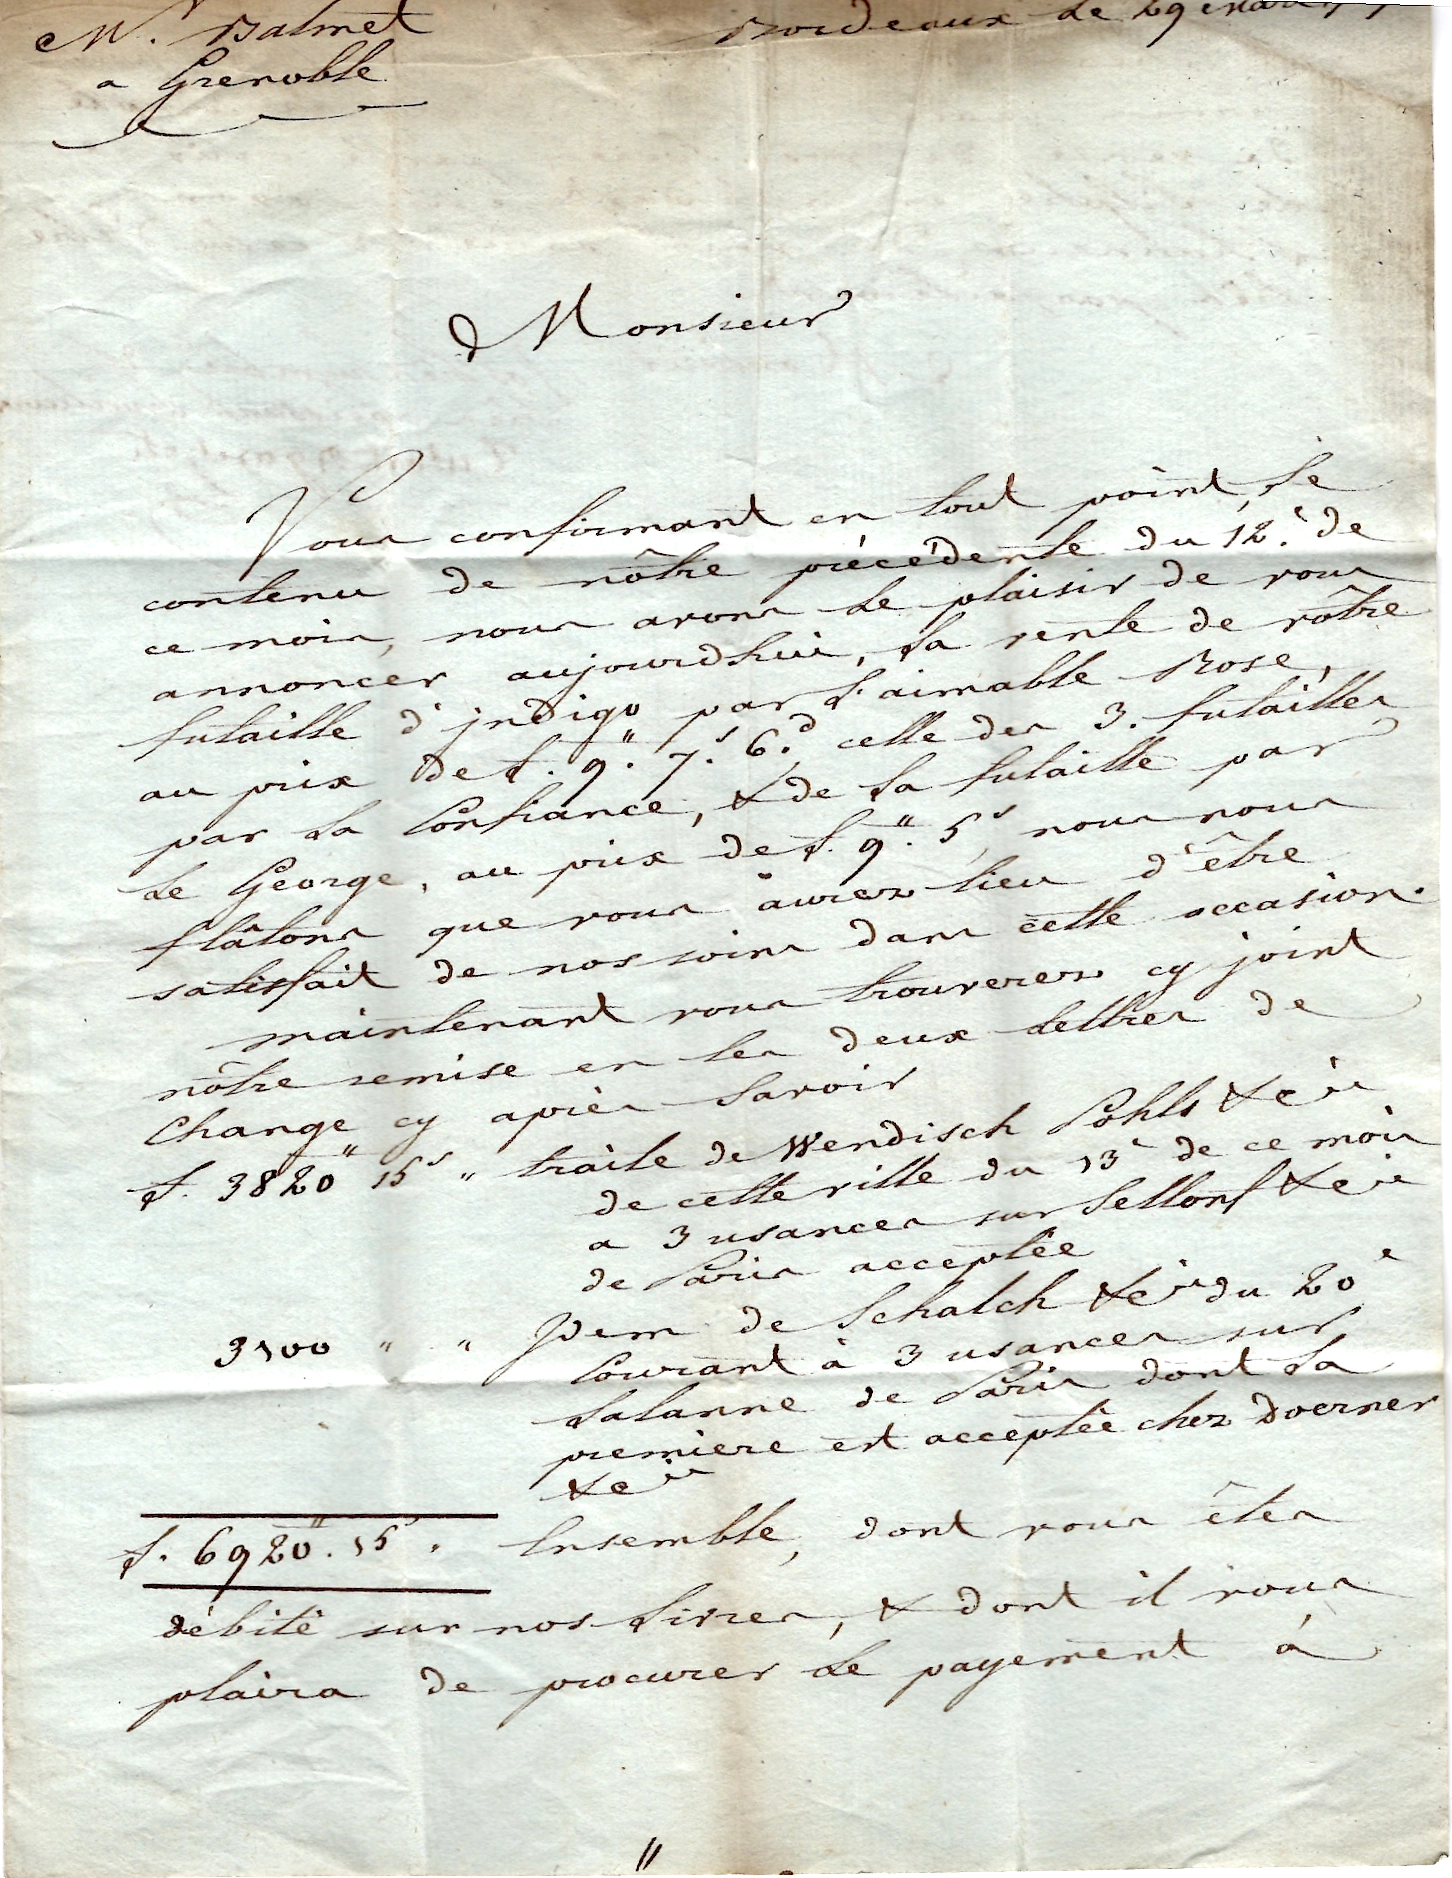 Mr. Balmet
Bordeaux le 29 mars
a Grenoble
Monsieur
Vous confirmant en tout point, le
contenu de nôtre précédente du 12.e de
ce mois, nous avons le plaisir de vous
annoncer aujourdhui, la vente de vôtre
futaille d'jndigo par l'aimable Rose,
au prix de £. 9". 7.s 6.d celle des 3. futailles
par la Confiance, & de la futaille par
le George, au prix de £. 9". 5s, nous nous
flâtons que vous aurez lieu d'être
satisfait de nos soins dans cette occasion.
maintenant vous trouverez cy joint
nôtre remise en les deux lettres de
Change cy après Savoir
£. 3820" 15s " traite de Wendisch Pohls & Cie
de cette ville du 13e de ce mois
a 3 usances sur Sellonf & Cie
de Paris acceptée
3100 " " Jdem de Schalch & Cie du 20e
Courant à 3 usances sur
Lalanne de Paris dont la
premiere est acceptée chez Doerner
& Cie
£. 6920". 15s. Ensemble, dont vous êtes
débité sur nos livres, & dont il vous
plaira de procurer le payement à